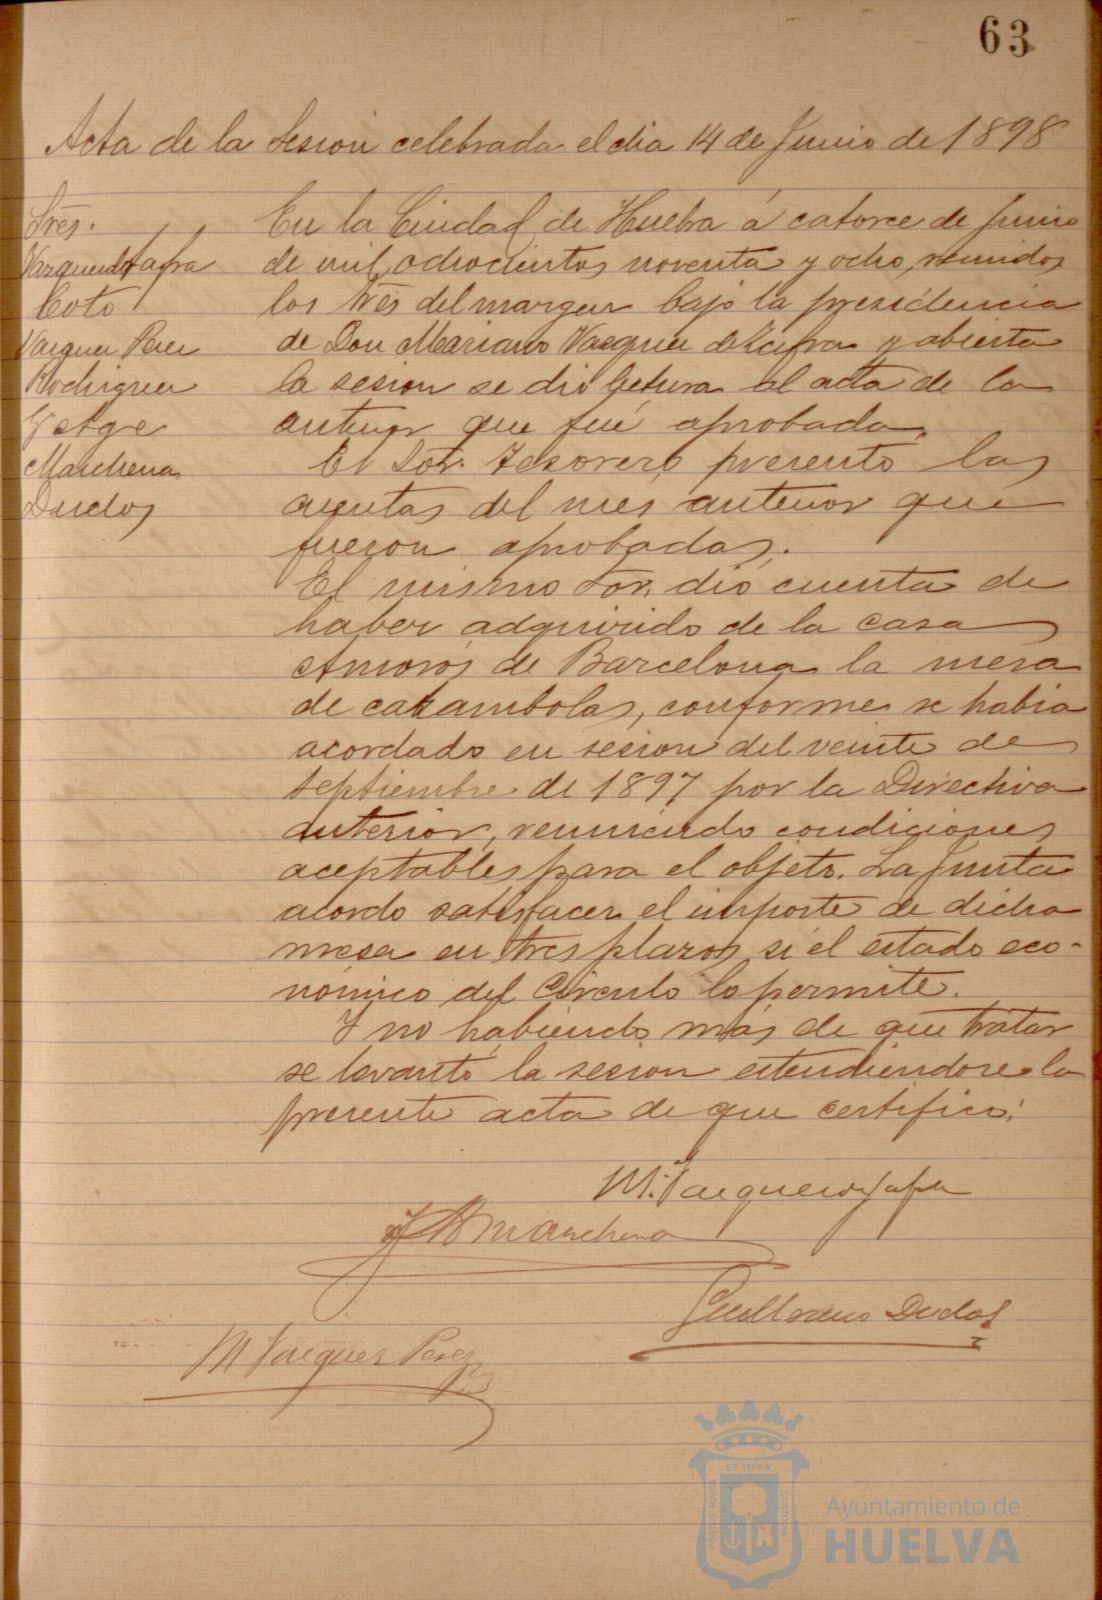 63
Acta de la Sesion celebrada el dia 14 de Junio de 1898
Sres.
Vazquez de Zafra
Coto
Vazquez Perez
Rodriguez
Marchena
Duclos
En la Ciudad de Huelva á catorce de Junio
de mil ochocientos noventa y ocho, reunidos
los Sres del margen bajo la presidencia
de Don Mariano Vazquez de Zafra y abierta
la sesion se dió lectura al acta de la
anterior que fué aprobada.
El Sor. Tesorero presentó las
cuentas del mes anterior que
fueron aprobadas.
El mismo Sor. dió cuenta de
haber adquirido de la casa
Amorós de Barcelona la mesa
de carambolas, conforme se habia
acordado en sesion del veinte de
Septiembre de 1897 por la Directiva
anterior, reuniendo condiciones
aceptables para el objeto. La Junta
acordó satisfacer el importe de dicha
mesa en tres plazos si el estado eco-
nómico del Circulo lo permite.
Y no habiendo más de que tratar
se levantó la sesion estendiendose la
presente acta de que certifico.
M. Vazquez de Zafra
Marchena
Guillermo Duclos
M Vazquez Perez
ET TERRÆ
PORTUS MARIS
CUSTODIA
Ayuntamiento de
HUELVA